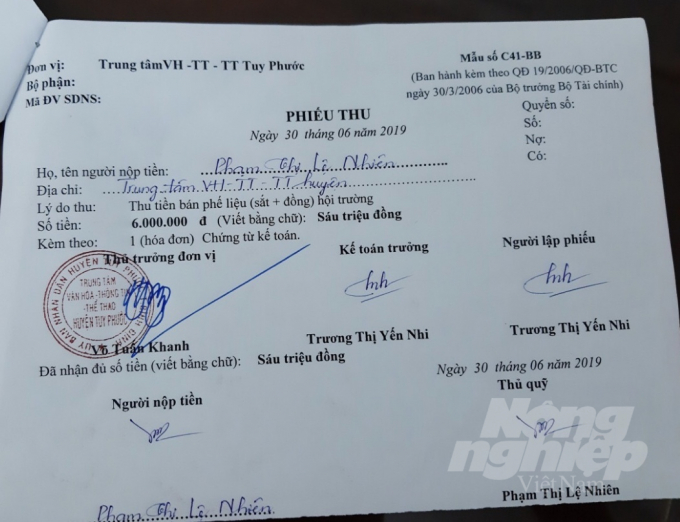 Đơn vị: Trung tâmVH -TT - TT Tuy Phước
Bộ phận:
Mã ĐV SDNS:
Mẫu số C41-BB
(Ban hành kèm theo QĐ 19/2006/QĐ-BTC
ngày 30/3/2006 của Bộ trưởng Bộ Tài chính)
Quyển số:
Số:
Nợ:
Có:
PHIẾU THU
Ngày 30 tháng 06 năm 2019
Họ, tên người nộp tiền: Phạm Thị Lệ Nhiên
Địa chỉ: Trung tâm VH-TT-TT huyện
Lý do thu: Thu tiền bán phế liệu (sắt + đồng) hội trường
Số tiền: 6.000.000 đ (Viết bằng chữ): Sáu triệu đồng
Kèm theo: 1 (hóa đơn) Chứng từ kế toán.
Thủ trưởng đơn vị Kế toán trưởng Người lập phiếu
TRUNG TÂM
VĂN HÓA-THÔNG TIN
-THỂ THAO
HUYỆN TUY PHƯỚC
Võ Tuấn Khanh Trương Thị Yến Nhi Trương Thị Yến Nhi
Đã nhận đủ số tiền (viết bằng chữ): Sáu triệu đồng
Ngày 30 tháng 06 năm 2019
Người nộp tiền Thủ quỹ
Phạm Thị Lệ Nhiên Phạm Thị Lệ Nhiên
Nông
nghiệp
Việt Nam